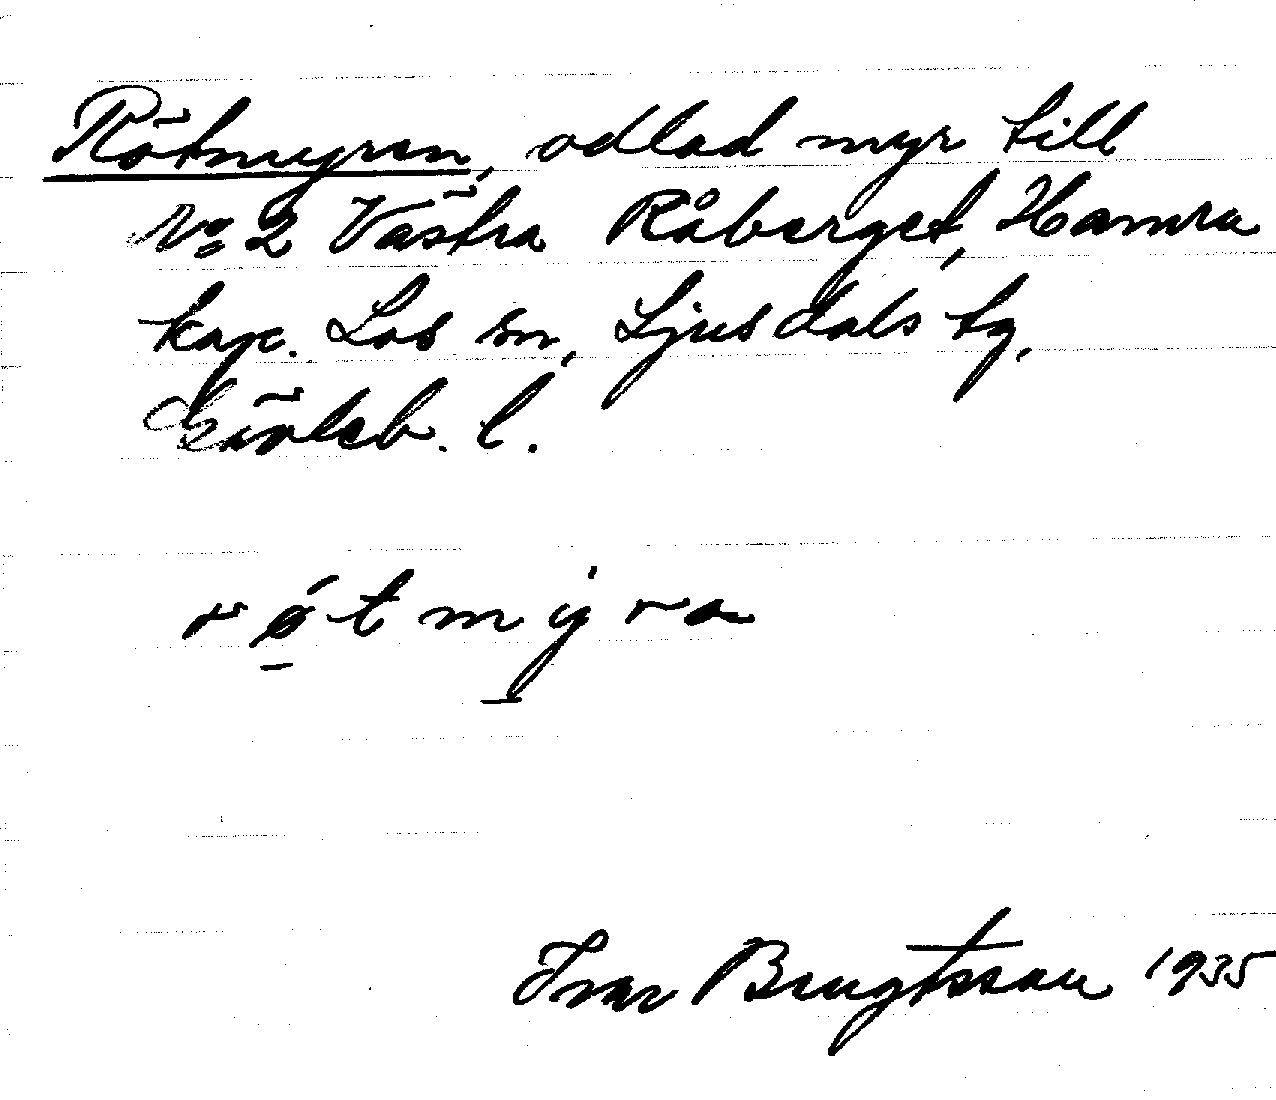 Rötmyren, odlad myr till
No 2 Västra Råberget, Hamra
kap. Los sn, Ljusdals tg,
Gävleb. l.
røtmyra
Ivar Bengtsson 1935